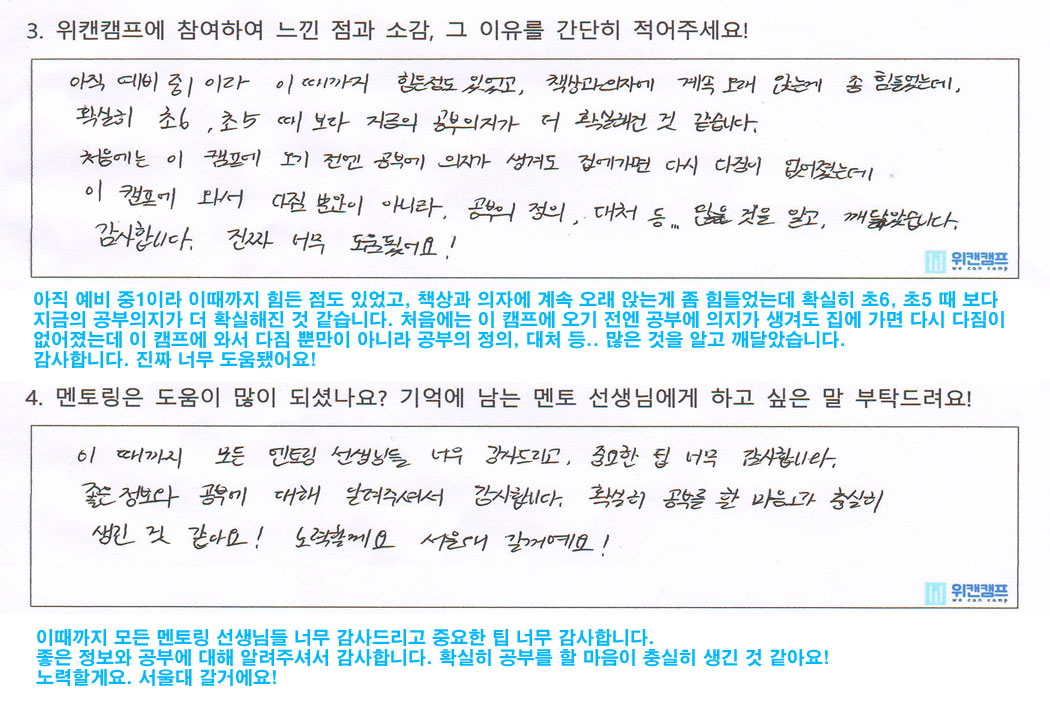 3. 위캔캠프에 참여하여 느낀 점과 소감, 그 이유를 간단히 적어주세요!
아직 예비 중1 이라 이때까지 힘든점도 있었고, 책상과의자에 계속 오래 앉는게 좀 힘들었는데,
확실히 초6, 초5 때 보다 지금의 공부의지가 더 확실해진 것 같습니다.
처음에는 이 캠프에 오기 전엔 공부에 의지가 생겨도 집에가면 다시 다짐이 없어졌는데
이 캠프에 와서 다짐 뿐만이 아니라, 공부의 정의, 대처 등... 많은 것을 알고, 깨달았습니다.
감사합니다. 진짜 너무 도움됐어요!
위캔캠프
we can camp
아직 예비 중1이라 이때까지 힘든 점도 있었고, 책상과 의자에 계속 오래 앉는게 좀 힘들었는데 확실히 초6, 초5 때 보다
지금의 공부의지가 더 확실해진 것 같습니다. 처음에는 이 캠프에 오기 전엔 공부에 의지가 생겨도 집에 가면 다시 다짐이
없어졌는데 이 캠프에 와서 다짐 뿐만이 아니라 공부의 정의, 대처 등.. 많은 것을 알고 깨달았습니다.
감사합니다. 진짜 너무 도움됐어요!
4. 멘토링은 도움이 많이 되셨나요? 기억에 남는 멘토 선생님에게 하고 싶은 말 부탁드려요!
이 때까지 모든 멘토링 선생님들 너무 감사드리고, 중요한 팁 너무 감사합니다.
좋은 정보와 공부에 대해 알려주셔서 감사합니다. 확실히 공부를 할 마음가 충실히
생긴 것 같아요! 노력할께요 서울대 갈꺼예요!
위캔캠프
we can camp
이때까지 모든 멘토링 선생님들 너무 감사드리고 중요한 팁 너무 감사합니다.
좋은 정보와 공부에 대해 알려주셔서 감사합니다. 확실히 공부를 할 마음이 충실히 생긴 것 같아요!
노력할게요. 서울대 갈거에요!